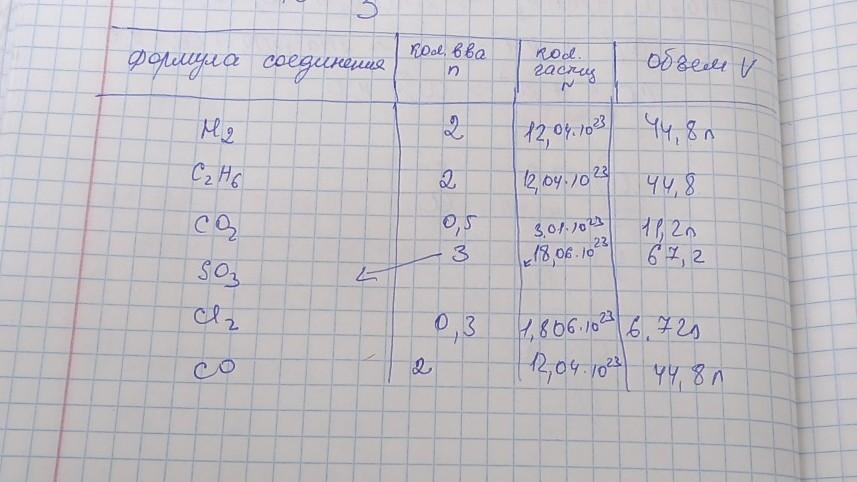 3
формула соединения кол. вва n кол. частиц N Объем V
H2 2 12,04·10^23 44,8л
C2H6 2 12,04·10^23 44,8
CO2 0,5 3,01·10^23 11,2л
3 18,06·10^23 67,2
SO3
Cl2 0,3 1,806·10^23 6.72л
CO 2 12,04·10^23 44,8л